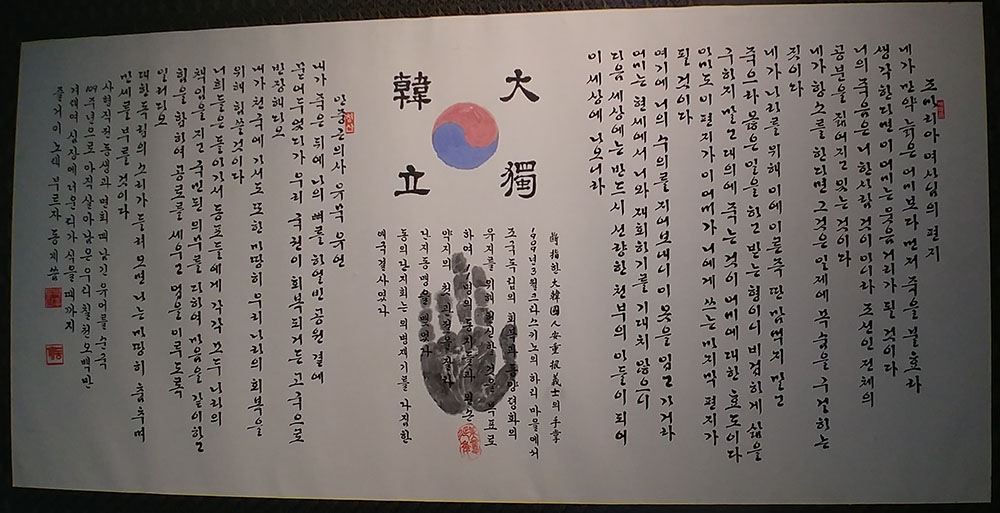 조마리아 여사님의 편지
네가 만약 늙은 어미보다 먼저 죽을 불효라
생각한다면 이 어미는 웃음거리가 될 것이다
너의 죽음은 너 한사람 것이 아니라 조선인 전체의
공분을 짊어지고 있는 것이다
네가 항소를 한다면 그것은 일제에 목숨을 구걸하는
짓이다
네가 나라를 위해 이에 이른즉 딴 맘먹지 말고
죽으라 옳은 일을 하고 받는 형이니 비겁하게 삶을
구하지 말고 대의에 죽는 것이 어미에 대한 효도이다
아마도 이 편지가 이 어미가 너에게 쓰는 마지막 편지가
될 것이다
여기에 너의 수의를 지어 보내니 이 옷을 입고 가거라
어미는 현세에서 너와 재회하기를 기대치 않으니
다음 세상에는 반드시 선량한 천부의 아들이 되어
이 세상에 나오너라
大韓
獨立
斷指한 大韓國人 安重根義士의 手掌
1909年3월 크라스키노의 하리 마을에서
조국 독립의 회복과 동양평화의
유지를 위해 헌신할 것을 목표로
하여 동지들과 왼손
약지의 첫 관절을 잘라
단지동맹을 맺었다
동의단지회는 의병재기를 다짐한
애국결사였다
안중근의사 유묵 유언
내가 죽은 뒤에 나의 뼈를 하얼빈공원 곁에
묻어두었다가 우리 국권이 회복되거든 고국으로
반장해다오
내가 천국에 가서도 또한 마땅히 우리나라의 회복을
위해 힘쓸 것이다
너희들은 돌아가서 동포들에게 각각 모두 나라의
책임을 지고 국민된 의무를 다하여 마음을 같이하고
힘을 합하여 공로를 세우고 업을 이루도록
일러다오
대한독립의 소리가 들려오면 나는 마땅히 춤추며
만세를 부를 것이다
사형직전 동생과 면회때 남긴 유언를
아직 살아남은 우리 칠천오백만
심장에 더운 피가 식을 때까지
즐거이 노래 부르자 동지 씀